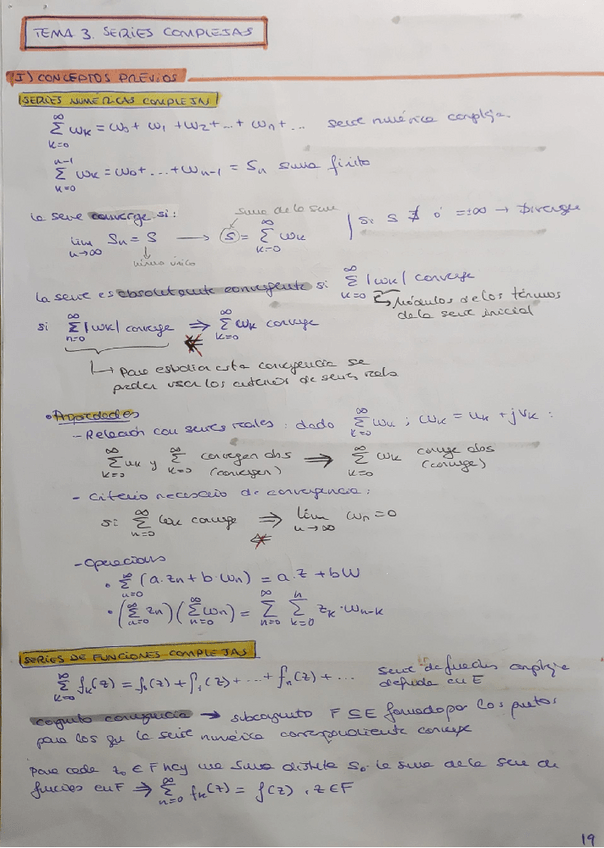 TEMA 3. SERIES COMPLEJAS
I) CONCEPTOS PREVIOS
SERIES NUMÉRICAS COMPLEJAS
∑_{k=0}^{∞} ωk = ω0 + ω1 + ω2 + ... + ωn + ... serie numérica compleja.
∑_{k=0}^{n-1} ωk = ω0 + ... + ωn-1 = Sn suma finita
suma de la serie
la serie converge si:
lim_{n→∞} Sn = S → (S) = ∑_{k=0}^{∞} ωk | si S ∄ ó = ±∞ → Diverge
límite único
la serie es absolutamente convergente si ∑_{k=0}^{∞} |ωk| converge
↳ Módulos de los términos
de la serie inicial
si ∑_{n=0}^{∞} |ωk| converge ⇒ ∑_{k=0}^{∞} ωk converge
⇍
↳ Para estudiar esta convergencia se
pueden usar los criterios de series reales
• Propiedades
- Relación con series reales: dado ∑_{k=0}^{∞} ωk ; ωk = uk + jvk :
∑_{k=0}^{∞} uk y ∑_{k=0}^{∞} convergen abs (convergen) ⇒ ∑_{k=0}^{∞} ωk converge abs (converge)
- Criterio necesario de convergencia:
si ∑_{n=0}^{∞} ωk converge ⇒ lim_{n→∞} ωn = 0
⇍
- Operaciones
• ∑_{n=0}^{∞} (a·zn + b·ωn) = a·z + bW
• (∑_{n=0}^{∞} zn)(∑_{n=0}^{∞} ωn) = ∑_{n=0}^{∞} ∑_{k=0}^{n} zk·ωn-k
SERIES DE FUNCIONES COMPLEJAS
∑_{k=0}^{∞} fk(z) = f0(z) + f1(z) + ... + fn(z) + ... serie de funciones compleja
definida en E
conjunto convergencia → subconjunto F ⊆ E formado por los puntos
para los que la serie numérica correspondiente converge
Para cada z0 ∈ F hay una suma distinta S0. la suma de la serie de
funciones en F ⇒ ∑_{n=0}^{∞} fk(z) = f(z), z ∈ F
19